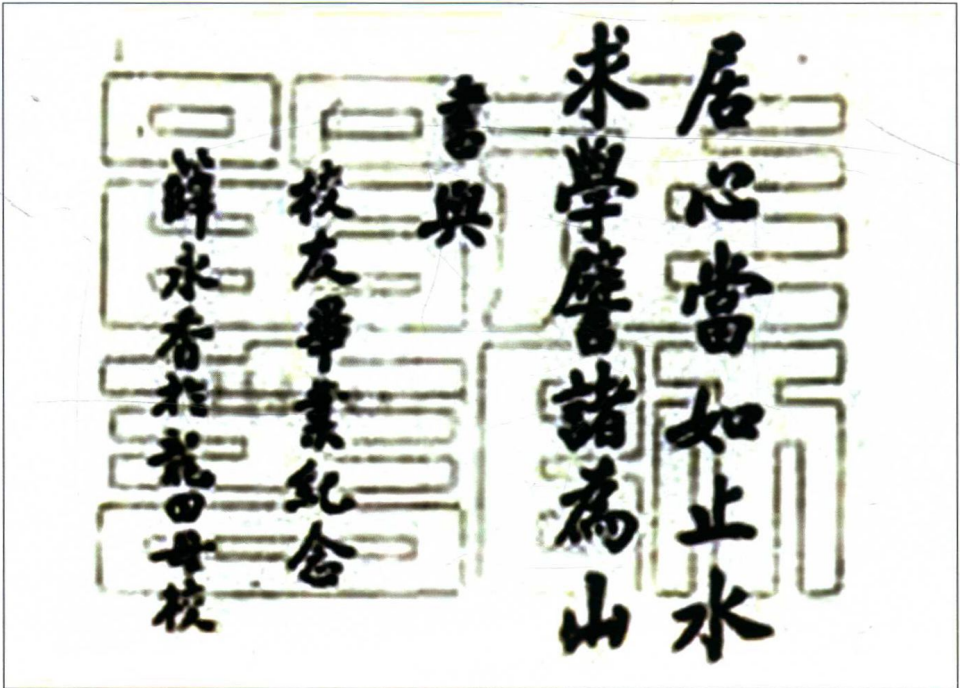 居心當如止水
求學譬諸為山
書與
校友畢業紀念
薛永香於龍田母校